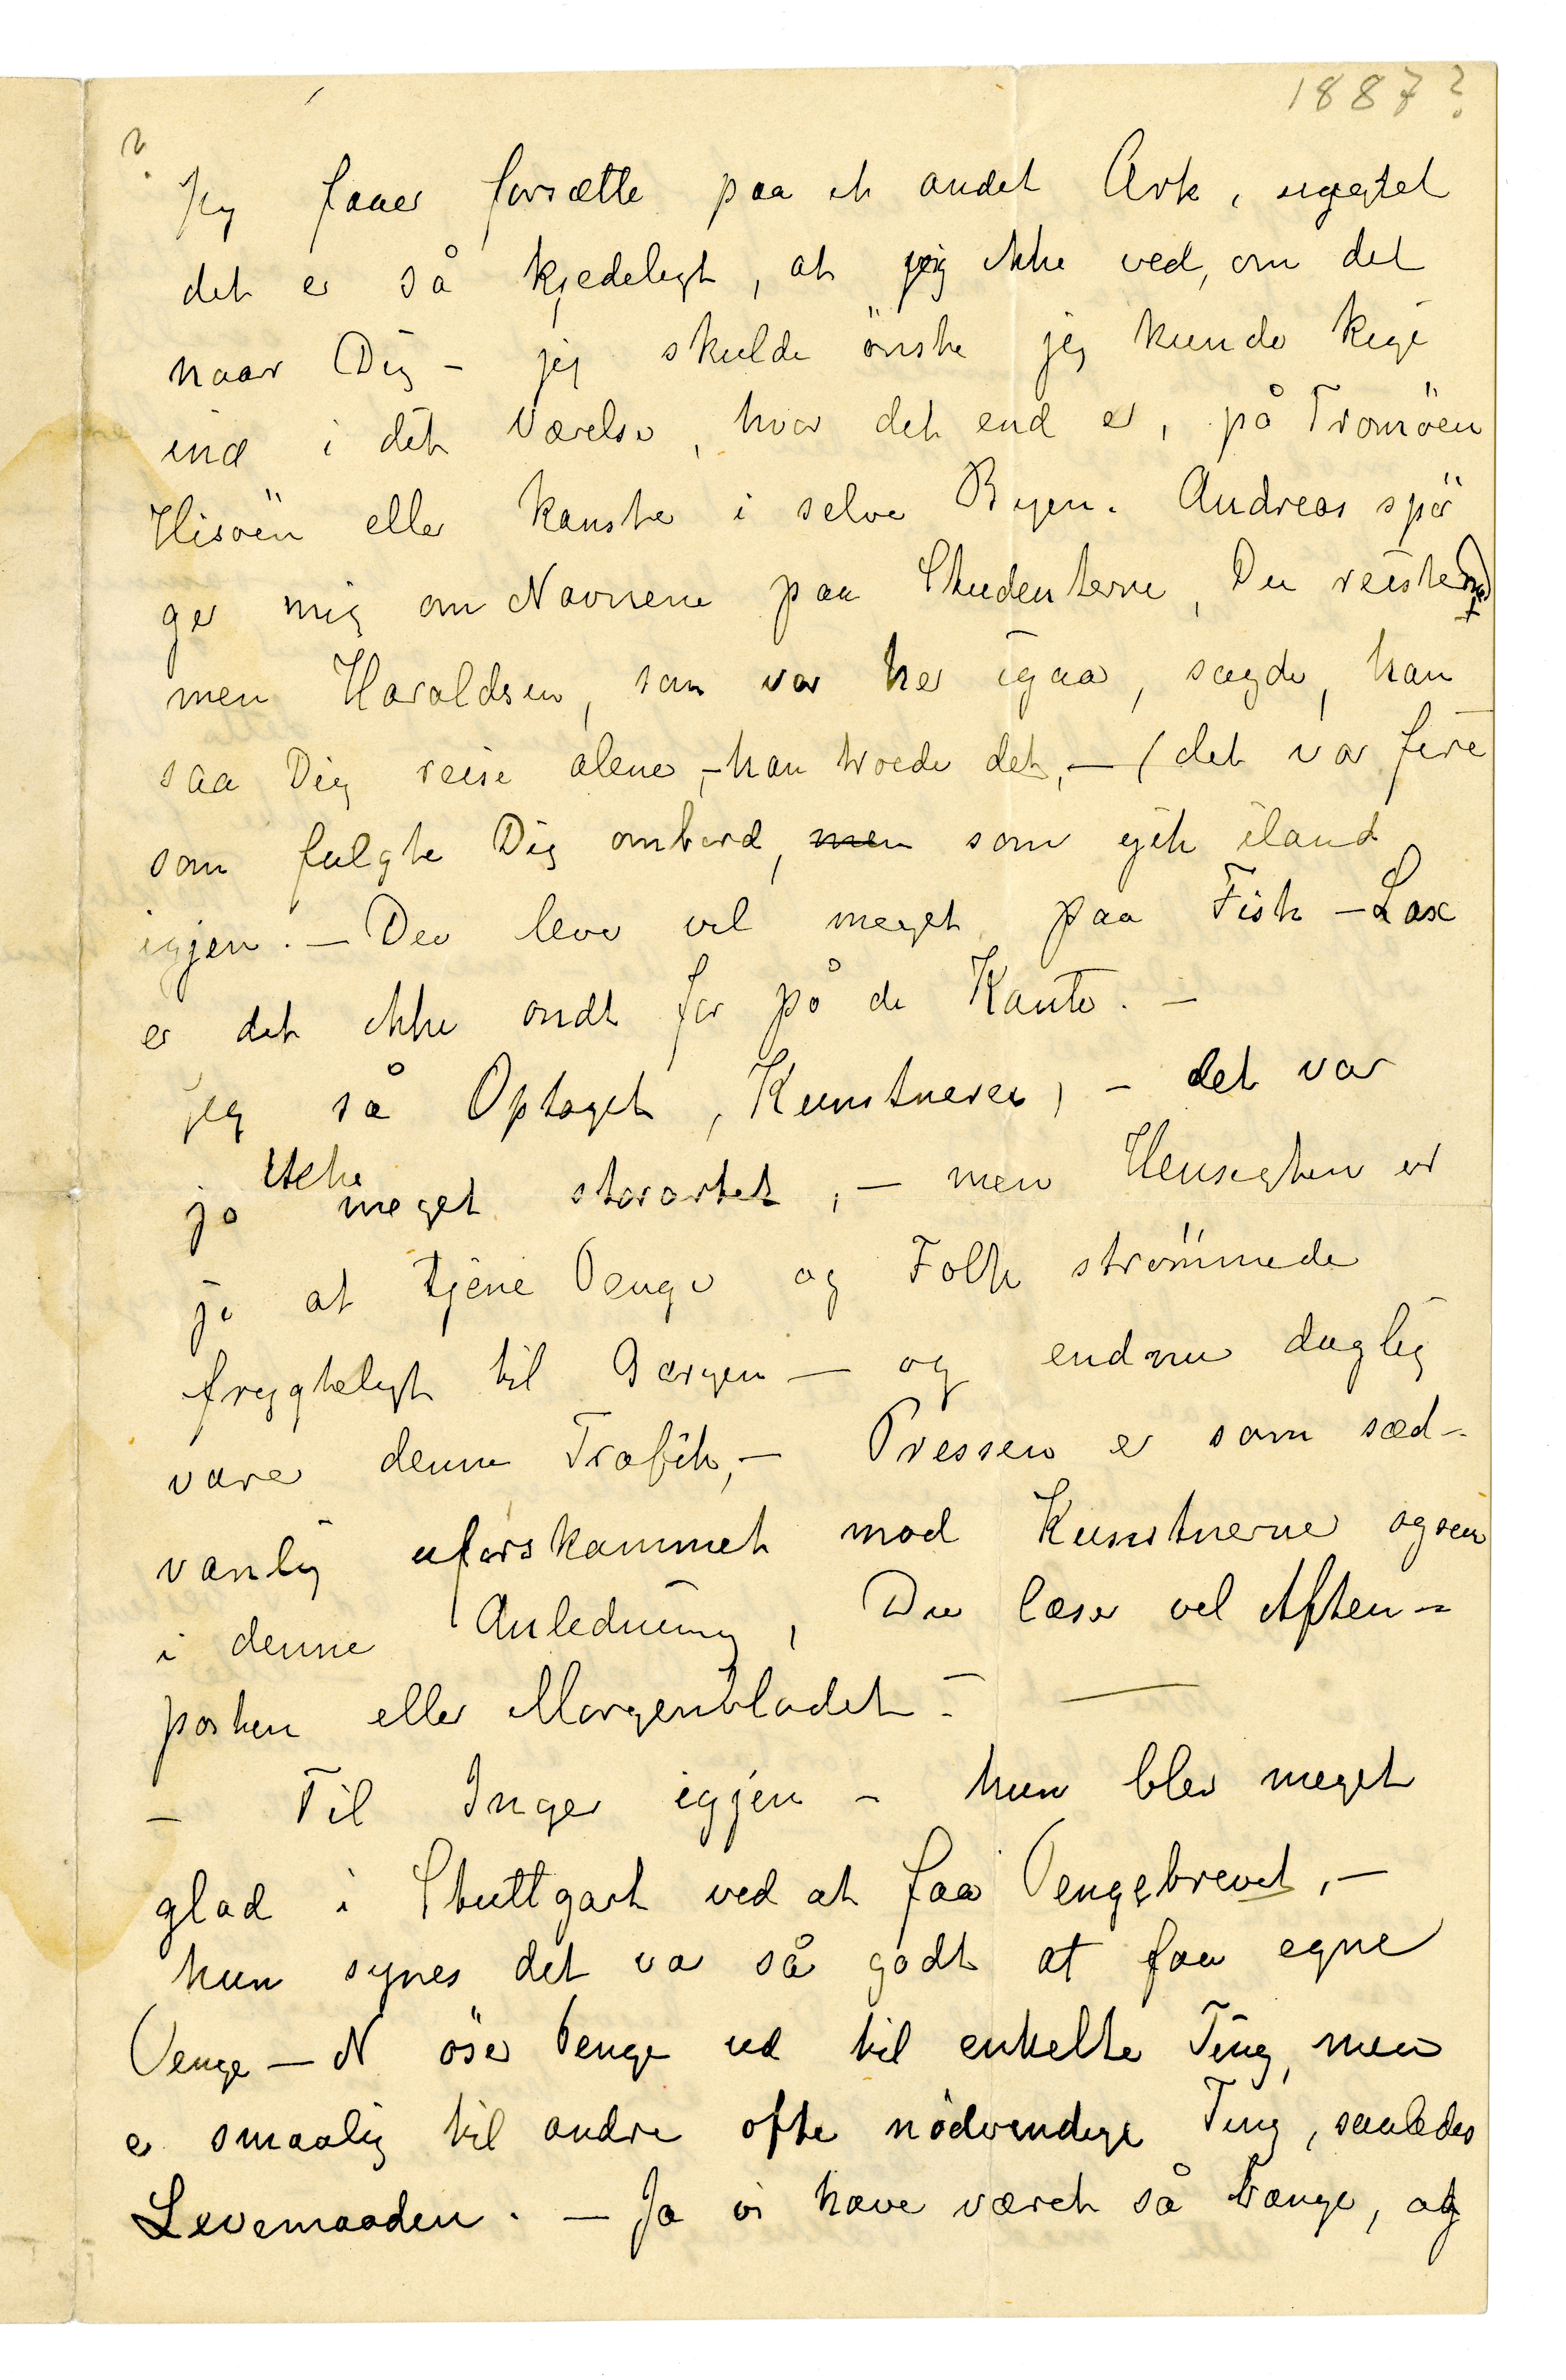 1887?
2.
Jeg faaer forsætte paa et andet Ark, uagtet
det er så kjedeligt, at jeg ikke ved, om det
naar Dig – jeg skulde önske jeg kunde kige
ind i det Værelse, hvor det end er, på Tromöen
Hisöen eller kanske i selve Byen. Andreas spör
ger mig om Navnene paa Studenterne, Du reiste med
men Haraldsen, som var her igaar, sagde, han
saa Dig reise alene, – han troede det, – (det var fire
som fulgte Dig ombord, men som gik iland
igjen. – Der leve vel meget paa Fisk – Lax
er det ikke ondt for på de Kanter. –
jeg så Optoget, Kunstneres, – det var
jo ikke meget storartet, – men Hensigten er
jo at tjene Penge og Folk strömmede
frygteligt til Gangen – og endnu daglig
varer denne Trafik, – Pressen er som sæd-
vanlig uforskammet mod Kunstnerne ogsaa
i denne Anledning, Du læser vel Aften-
posten eller Morgenbladet –
– Til Inger igjen – hun blev meget
glad i Stuttgart ved at faa Pengebrevet, –
hun synes det var så godt at faa egne
Penge – N öser Penge ud til enkelte Ting, men
er smaalig til andre ofte nödvendige Ting, saaledes
Levemaaden. – Ja vi have været så bange, og